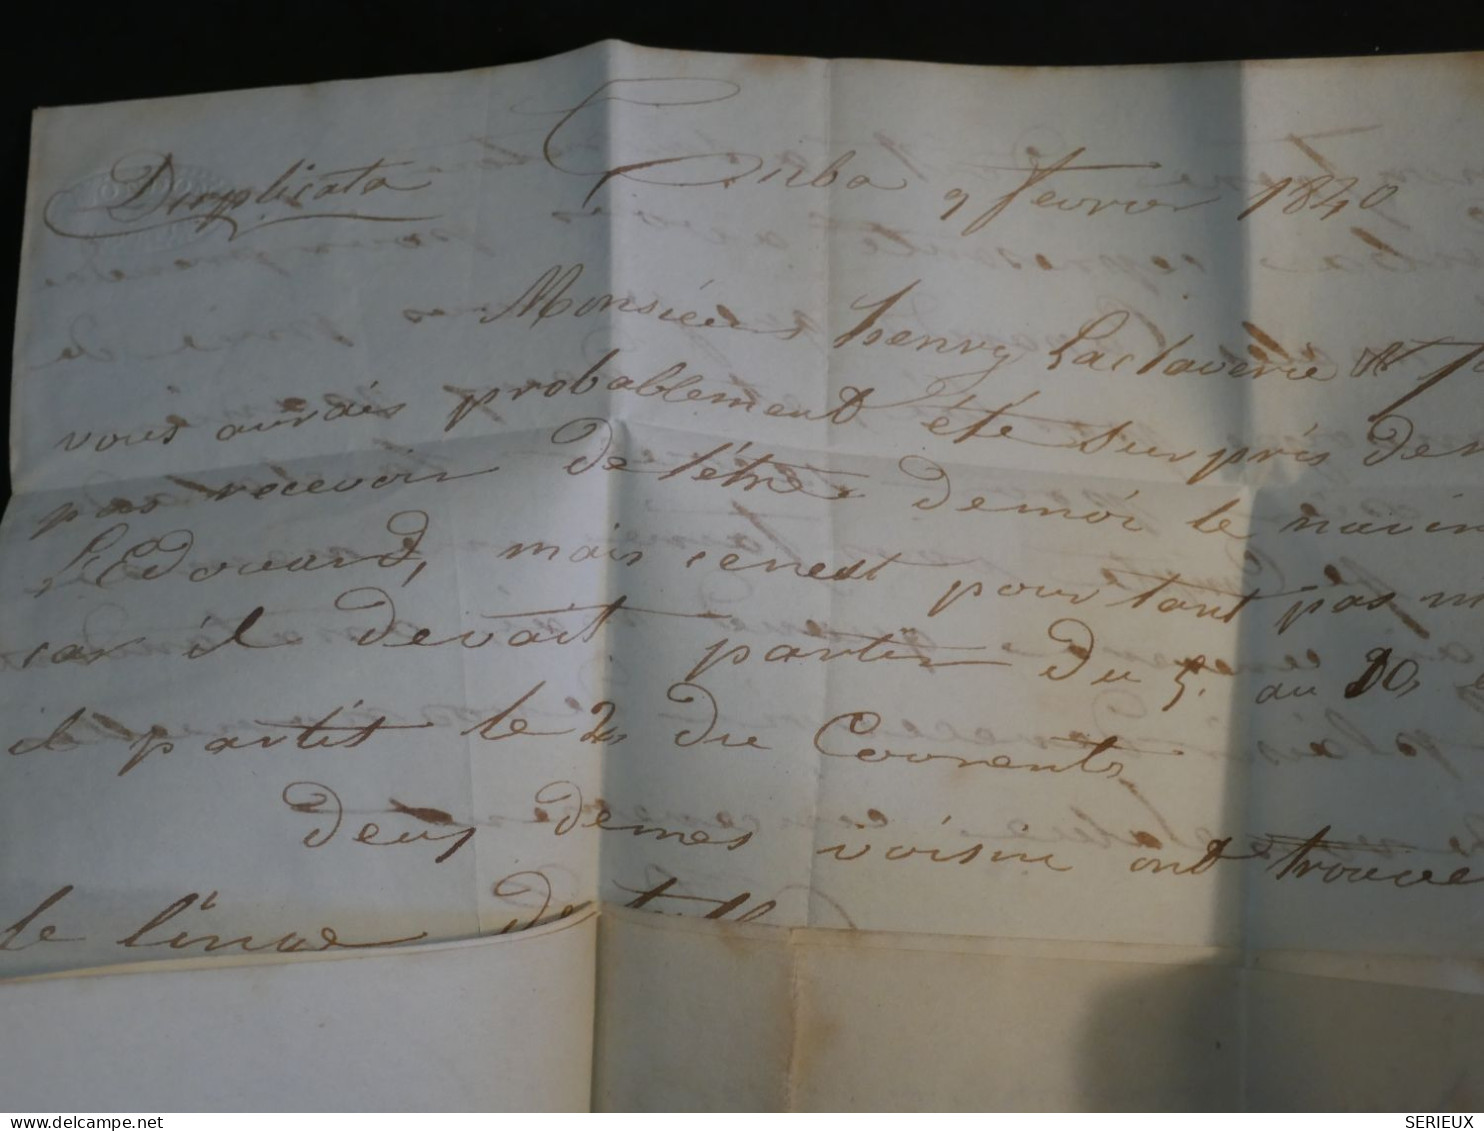 Duplicata
9 fevrier 1840
Monsieur henry Laclaverie et
vous aurais probablement été surpris de
pas recevoir de l'étres demoi le navir
L'Edouard, mais cenest pourtant pas
car il devait partir du 5. au 10,
il partit le du Courents
deux demes voisin ont trouve
le linge de
delcampe.net
SERIEUX